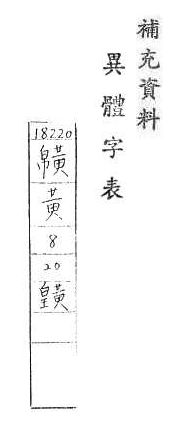 補充資料
異體字表
18220
黃
8
20